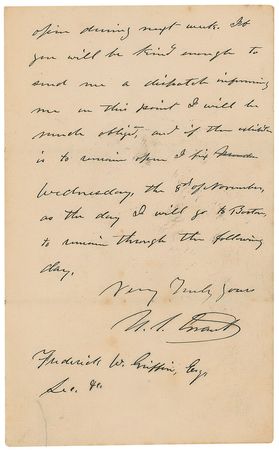 open during next week. If
you will be kind enough to
send me a dispatch informing
me on this point I will be
much obliged, and if the exhibition
is to remain open I fix
Wednesday, the 3d of November,
as the day I will go to Boston,
to remain through the following
day.
Very Truly Yours
U. S. Grant
Frederick W. Griffin, Esq.
Sec. &c.